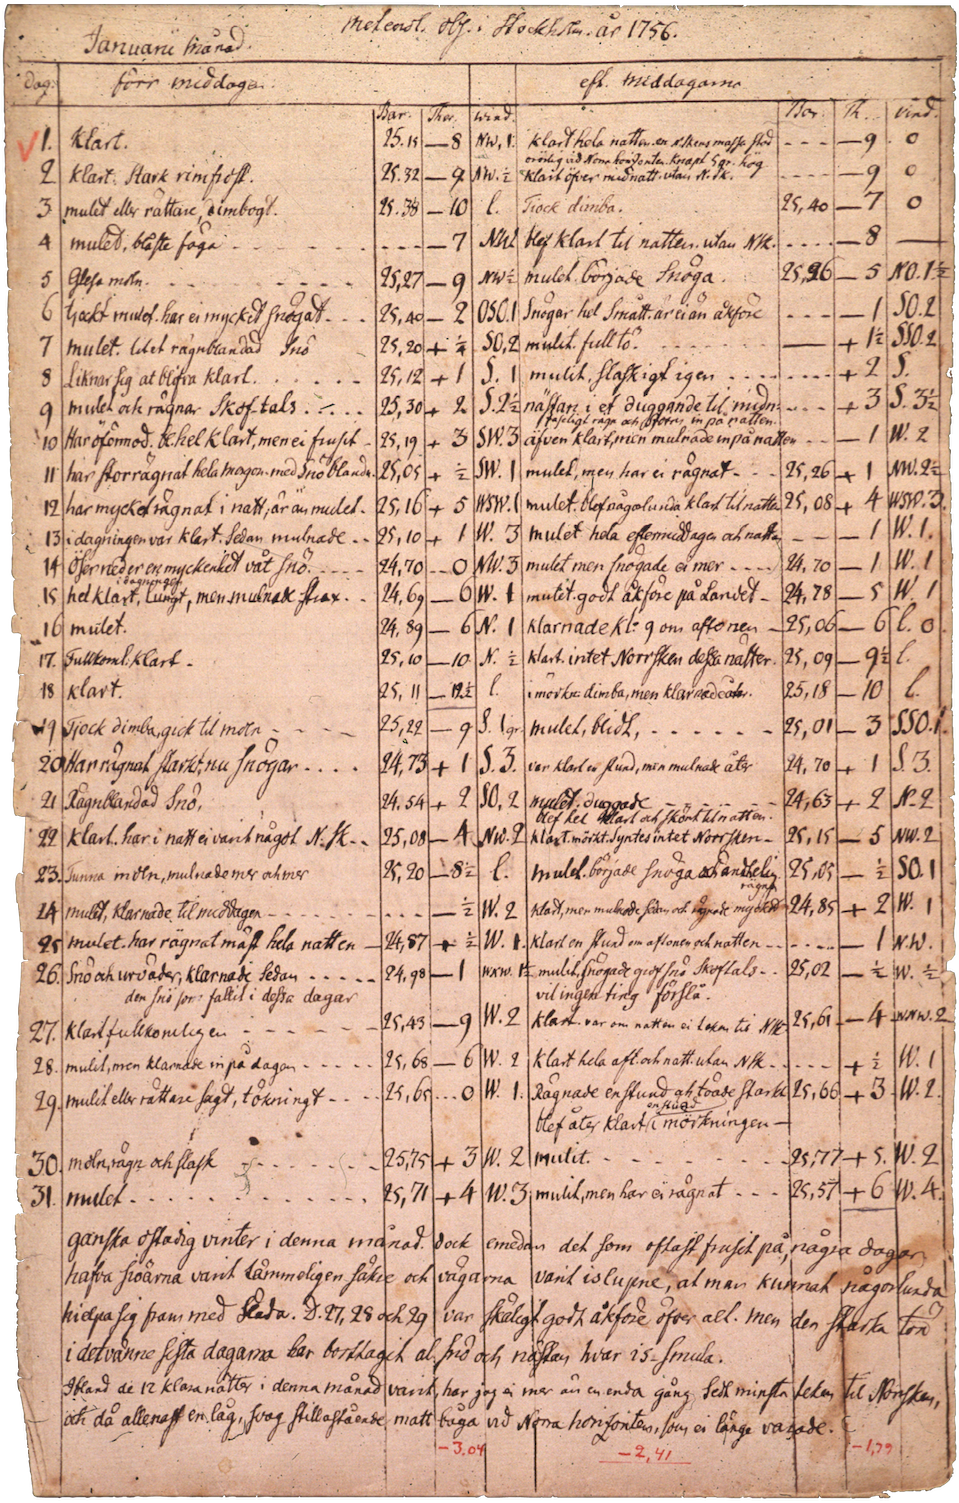 Meteorol. Obs. i Stockholm år 1756.
Januarii Månad.
dag. förr middagen eft. Middagarna
Bar. Ther. wind. Bar. Th. vind.
1. klart. 25.15 — 8 NW. 1. klart hela natten. en Nskens massa stod - - - — 9 . 0
orörlig vid Norra horizonten. knapt 5 gr. hög
2 klart. Stark rimfrost. 25.32 — 9 NW. ½ klart öfver midnatt. utan N.sk. - - - - — 9 0
3 mulet eller rättare, dimbogt. 25.38 — 10 l. Tiock dimba. 25,40 — 7 0
4 mulet, blåste föga - - - - - - — 7 NW blef klart til natten. utan Nsk. - - - - — 8 —
5 Glesa moln. - - - - - 25,27 — 9 NW ½ mulet. började Snöga. 25,26 — 5 NO. 1½
6 tiockt mulet. har ei mycket snögat - - - 25,40 — 2 OSO.1 Snögar hel Smått. är ei än åkföre - - - — 1 SO. 2
7 mulet. litet rägnblandad Snö 25,20 + ¼ SO, 2 mulit. full tö. - - - - - — + 1½ SSO. 2
8 Liknar sig at blifva klart. - - - - - 25,12 + 1 S. 1 mulit. slaskigt igen - - - - - + 2 S.
9 mulet och rägnar Skof-tals - - . - - 25,30 + 2 S. 2½ nästan i et duggande til midn- - - - + 3 S. 3½
in på natten.
10 Har öfermod. tö hel klart, men ei frusit - 25,19 + 3 SW. 3 äfven klart, men mulnade in på natten - - - — 1 W. 2
11 har stor rägnat hela morgon. med Snö bland. 25,05 + ½ SW. 1 mulet, men har ei rägnat - - - 25,26 + 1 NW. 2½
12 har mycket rägnat i natt, är än mulet - 25,16 + 5 WSW. 1 mulet. blef någorlunda klart til natten 25,08 + 4 WSW. 3
13 i dagningen var klart. Sedan mulnade - - 25,10 + 1 W. 3 mulet hela eftermiddagen och natten - - — 1 W. 1.
14 öser neder en myckenhet våt Snö. - - - - 24,70 - - 0 NW. 3 mulet men snögade ei mer - - - - 24,70 — 1 W. 1
i dagningen
15 hel klart, lungt, men mulnade strax - - 24,69 — 6 W. 1 mulit. godt åkföre på Landet - 24,78 — 5 W. 1
16 mulet. 24,89 — 6 N. 1 klarnade kl: 9 om aftonen — 25,06 — 6 l. 0
17. Fullkoml. klart - 25,10 — 10 N. ½ klart. intet Norrsken dessa nätter. 25,09 — 9½ l.
18 klart. 25, 11 — 12½ l. i mörkn. dimba, men klarnade åter. 25,18 — 10 l.
19 Tiock dimba, gick til moln - - - - 25,22 — 9 S. 1 gr. mulet, blidt, - - - - - - 25,01 — 3 SSO. 1
20 Har rägnat starkt, nu snögar - - - - 24,73 + 1 S. 3. var klart en stund, men mulnade åter 24,70 + 1 S. 3.
21 Rägnblandad Snö. 24.54 + 2 SO, 2 mulet, duggade - - - - - 24,63 + 2 N. 2
blef hel klart och skönt til natten.
22 klart. har i natt ei varit något N.sk - - 25,08 — 4 NW. 2 klart. mörkt. syntes intet Norrsken - 25,15 — 5 NW. 2
23. Tunna moln, mulnade mer och mer 25,20 — 8½ l. mulet. började snöga och 25,05 — ½ SO. 1
rägna
24 mulet, klarnade til middagen - - - - - - - - - — ½ W. 2 klart, men mulnade sedan och rägnade mycket 24,85 + 2 W. 1
25 mulet. har rägnat mäst hela natten — 24,87 + ½ W. 1. klart en stund om aftonen och natten - - - - - — 1 N.W.
26. Snö och urväder, klarnade Sedan - - - - 24,98 — 1 WNW. 1½ mulit, snögade grof snö Skoftals - - 25,02 — ½ W. ½
den snö som fallit i dessa dagar vil ingen ting förslå.
27. klart fullkomligen - - - - - - 25,43 — 9 W. 2 klart. var om natten ei teken til Nsk- 25,61 — 4 WNW. 2
28. mulit, men klarnade in på dagen - - - - 25,68 — 6 W. 2 klart hela aft. och natt. utan Nsk. - - - - + ½ W. 1
29. mulit eller rättare sagt, tökningt - - - - 25,65 . . . 0 W. 1. Rägnade en stund och töade starkt 25,66 + 3 W. 2.
en stund
blef åter klart i mörkningen —
30. moln, rägn och slask - - - - - - 25,75 + 3 W. 2 mulit. - - - - - - - 25,77 + 5. W. 2
31. mulet - - - - - - - - - - - 25,71 + 4 W. 3 mulit, men har ei rägnat - - - 25,57 + 6 W. 4.
ganska ostadig vinter i denna månad. dock emedan det som oftast frusit på, några dagar
hafva siöarna varit tämmeligen säkre och vägarna varit islupne, at man kunnat någorlunda
hielpa sig fram med Släda. D. 27, 28 och 29 var skäligt godt åkföre öfver alt. men den starka tön
i detvanne sista dagarna bar borttagit al snö och nästan hvar is-smula.
Ibland de 12 klara nätter i denna månad varit, har jag ei mer än en enda gång Sedt minsta teken til Norrsken,
och då allenast en låg, svag stillastående matt båga vid Norra horizonten, som ei länge varade.
- 3,04 - 2,41 - 1,79